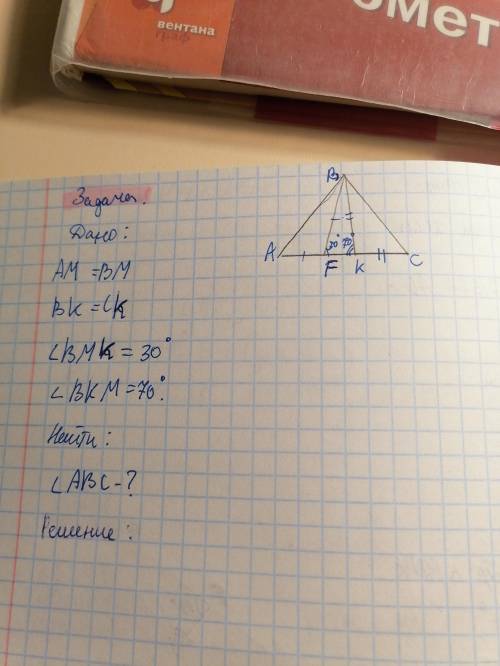 вентана
граф
омет
Задача.
Дано:
AM = BM
BK = CK
∠BMK = 30°
∠BKM = 70°.
Найти:
∠ABC - ?
Решение:
B
A
30° 70°
F K C